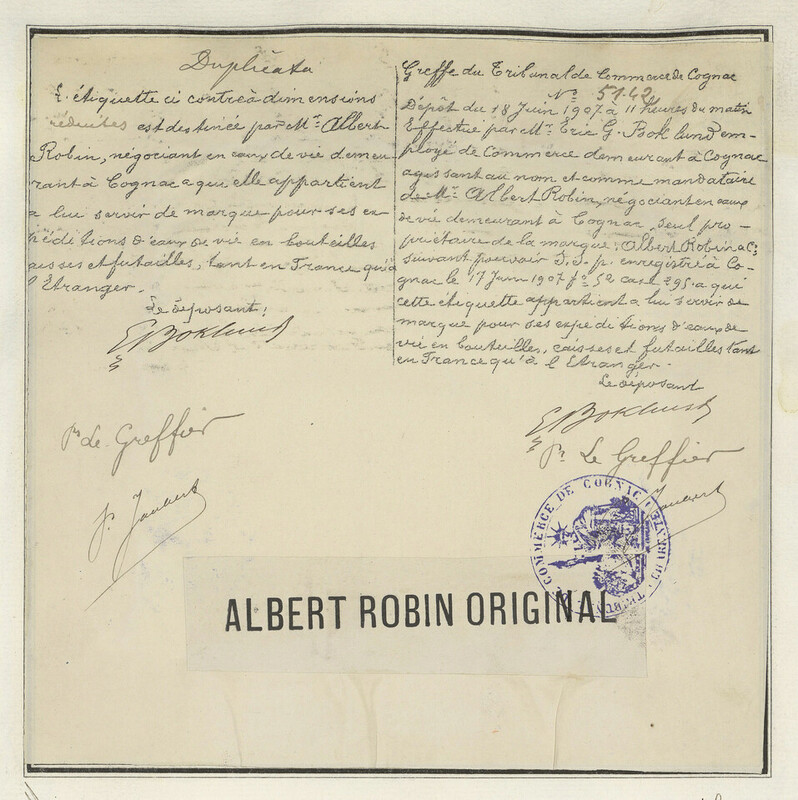 Duplicata
L'étiquette ci contre à dimensions
réduites est destinée par Mr. Albert
Robin, négociant en eaux de vie demeu
rant à Cognac a qui elle appartient
a lui servir de marque pour ses ex
péditions d'eaux de vie en bouteilles
caisses et futailles, tant en France qu'à
l'Etranger.
Le déposant,
EG Boklund
Pr. Le Greffier
Greffe du Tribunal de Commerce de Cognac
No. 5142
Dépôt du 18 Juin 1907 à 11 heures du matin
Effectué par Mr. Eric G. Boklund em-
ployé de Commerce demeurant à Cognac
agissant au nom et comme mandataire
de Mr. Albert Robin, négociant en eaux
de vie demeurant à Cognac, seul pro-
priétaire de la marque, Albert Robin & Co.
suivant pouvoir S.S.p. enregistré à Co-
gnac le 17 Juin 1907 fo. 52 case 295. a qui
cette étiquette appartient a lui servir de
marque pour ses expeditions d'eaux de
vie en bouteilles, caisses et futailles tant
en France qu'à l'Etranger.
Le déposant
EG Boklund
Pr. Le Greffier
COMMERCE DE COGNAC
ALBERT ROBIN ORIGINAL